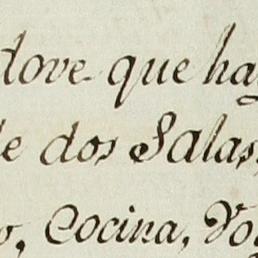 dove que ha
de dos Salas,
o, Cocina, Vo